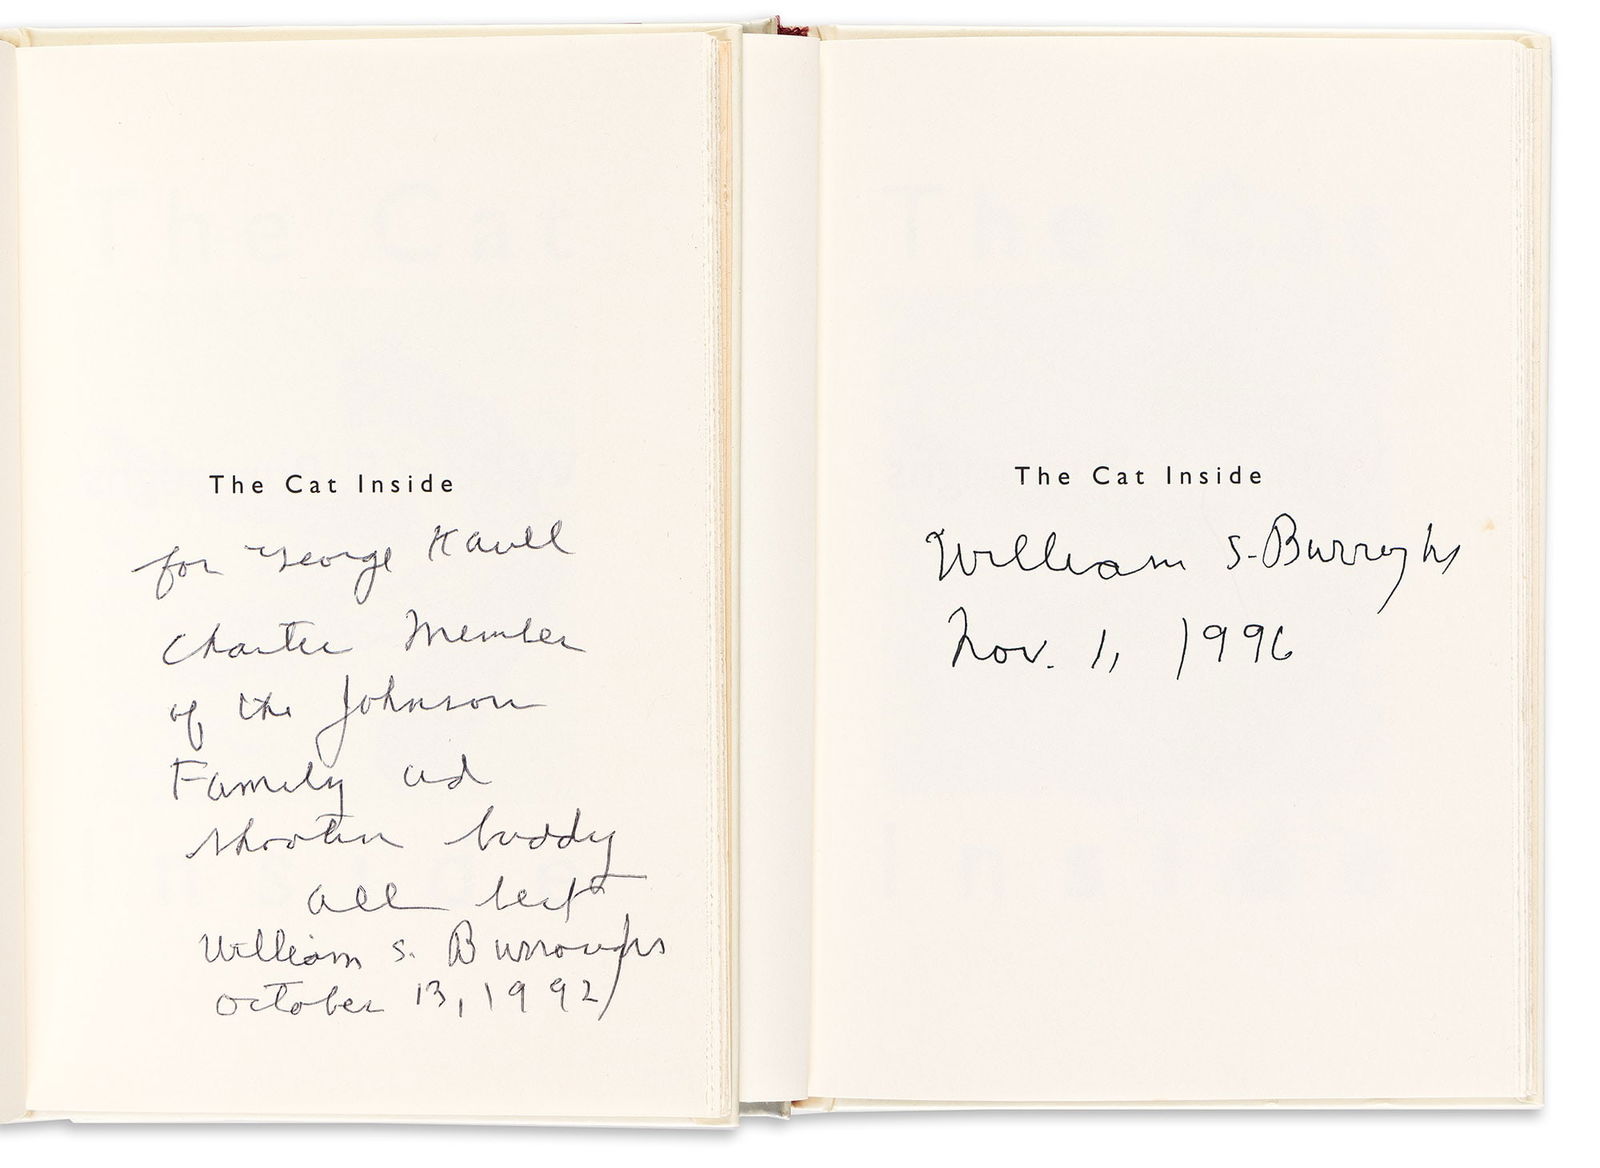 The Cat Inside
for George Kaull
Charter Member
of the Johnson
Family ad
shootin buddy
all best
William S. Burroughs
October 13, 1992
The Cat Inside
William S. Burroughs
Nov. 1, 1996